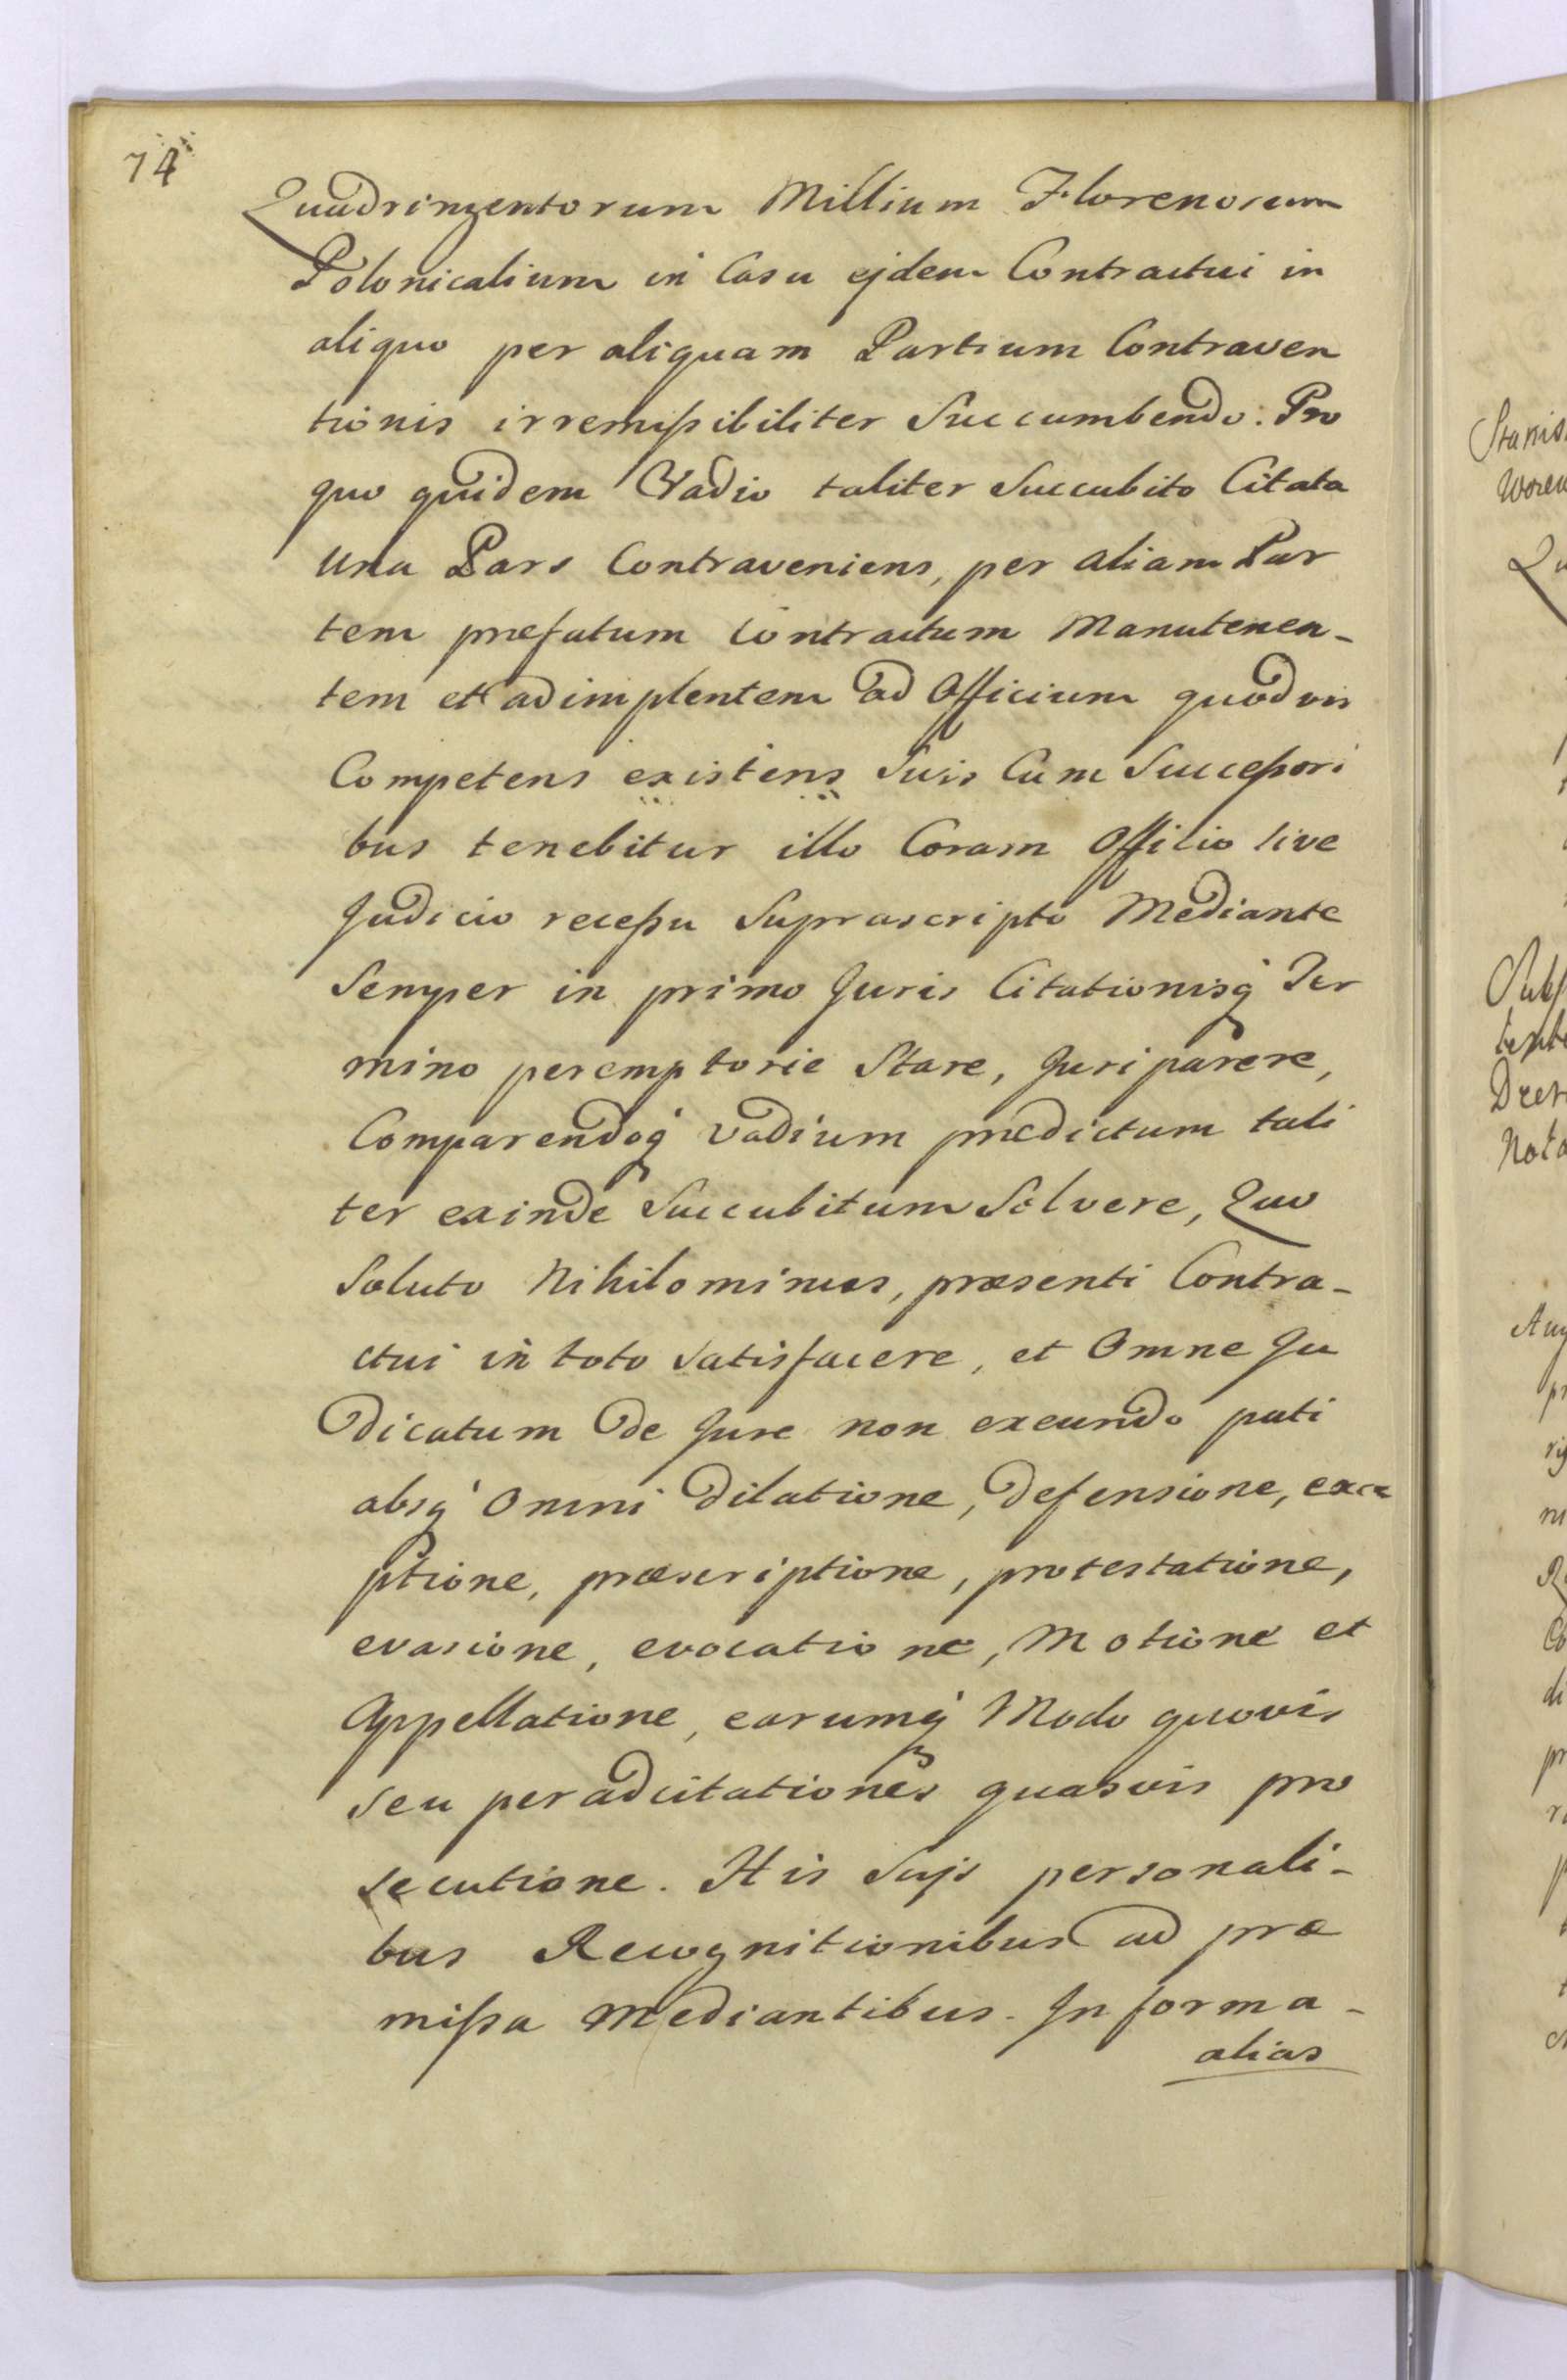 74
Quadringentorum Millium Florenorum
Polonicalium in Casu ejdem Contractui in
aliquo per aliquam Partium Contraven
tionis irremissibiliter Succumbendo. Pro
quo quidem Vadio taliter Succubito Citata
Una Pars Contraveniens, per aliam Par
tem præfatum Contractum Manutenen-
tem et adimplentem ad Officium quodvis
Competens existens Suis Cum Successori
bus tenebitur illo Coram Officio sive
Judicio recessu Suprascripto Mediante
Semper in primo Juris Citationisq́ Ter
mino peremptorie Stare, Juri parere,
Comparendoq́ vadium prædictum tali
ter exinde Succubitum Solvere, Quo
Soluto Nihilominus, præsenti Contra-
ctui in toto Satisfacere, et Omne Ju
dicatum de Jure non exeundo pati
absq́ Omni dilatione, defensione, exce
ptione, præscriptione, protestatione,
evasione, evocatione, Motione et
Appellatione, earumq́ Modo quovis
seu per adcitationes quasvis pro
secutione. His Sujs personali-
bus Recognitionibus ad præ
missa Mediantibus. In forma-
alias
Stanis
Woren
Qu
Subs
Dzer
Nota